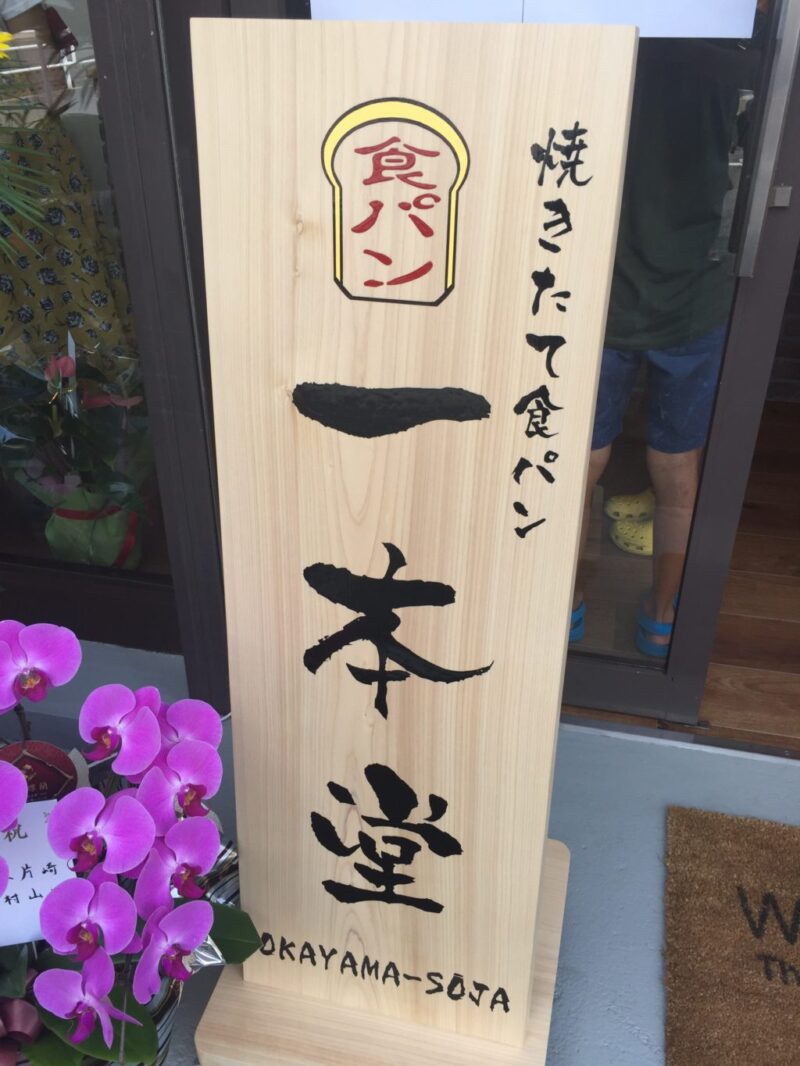 焼きたて食パン
食パン
一本堂
OKAYAMA-SŌJA
祝
片崎
村山
W
Th